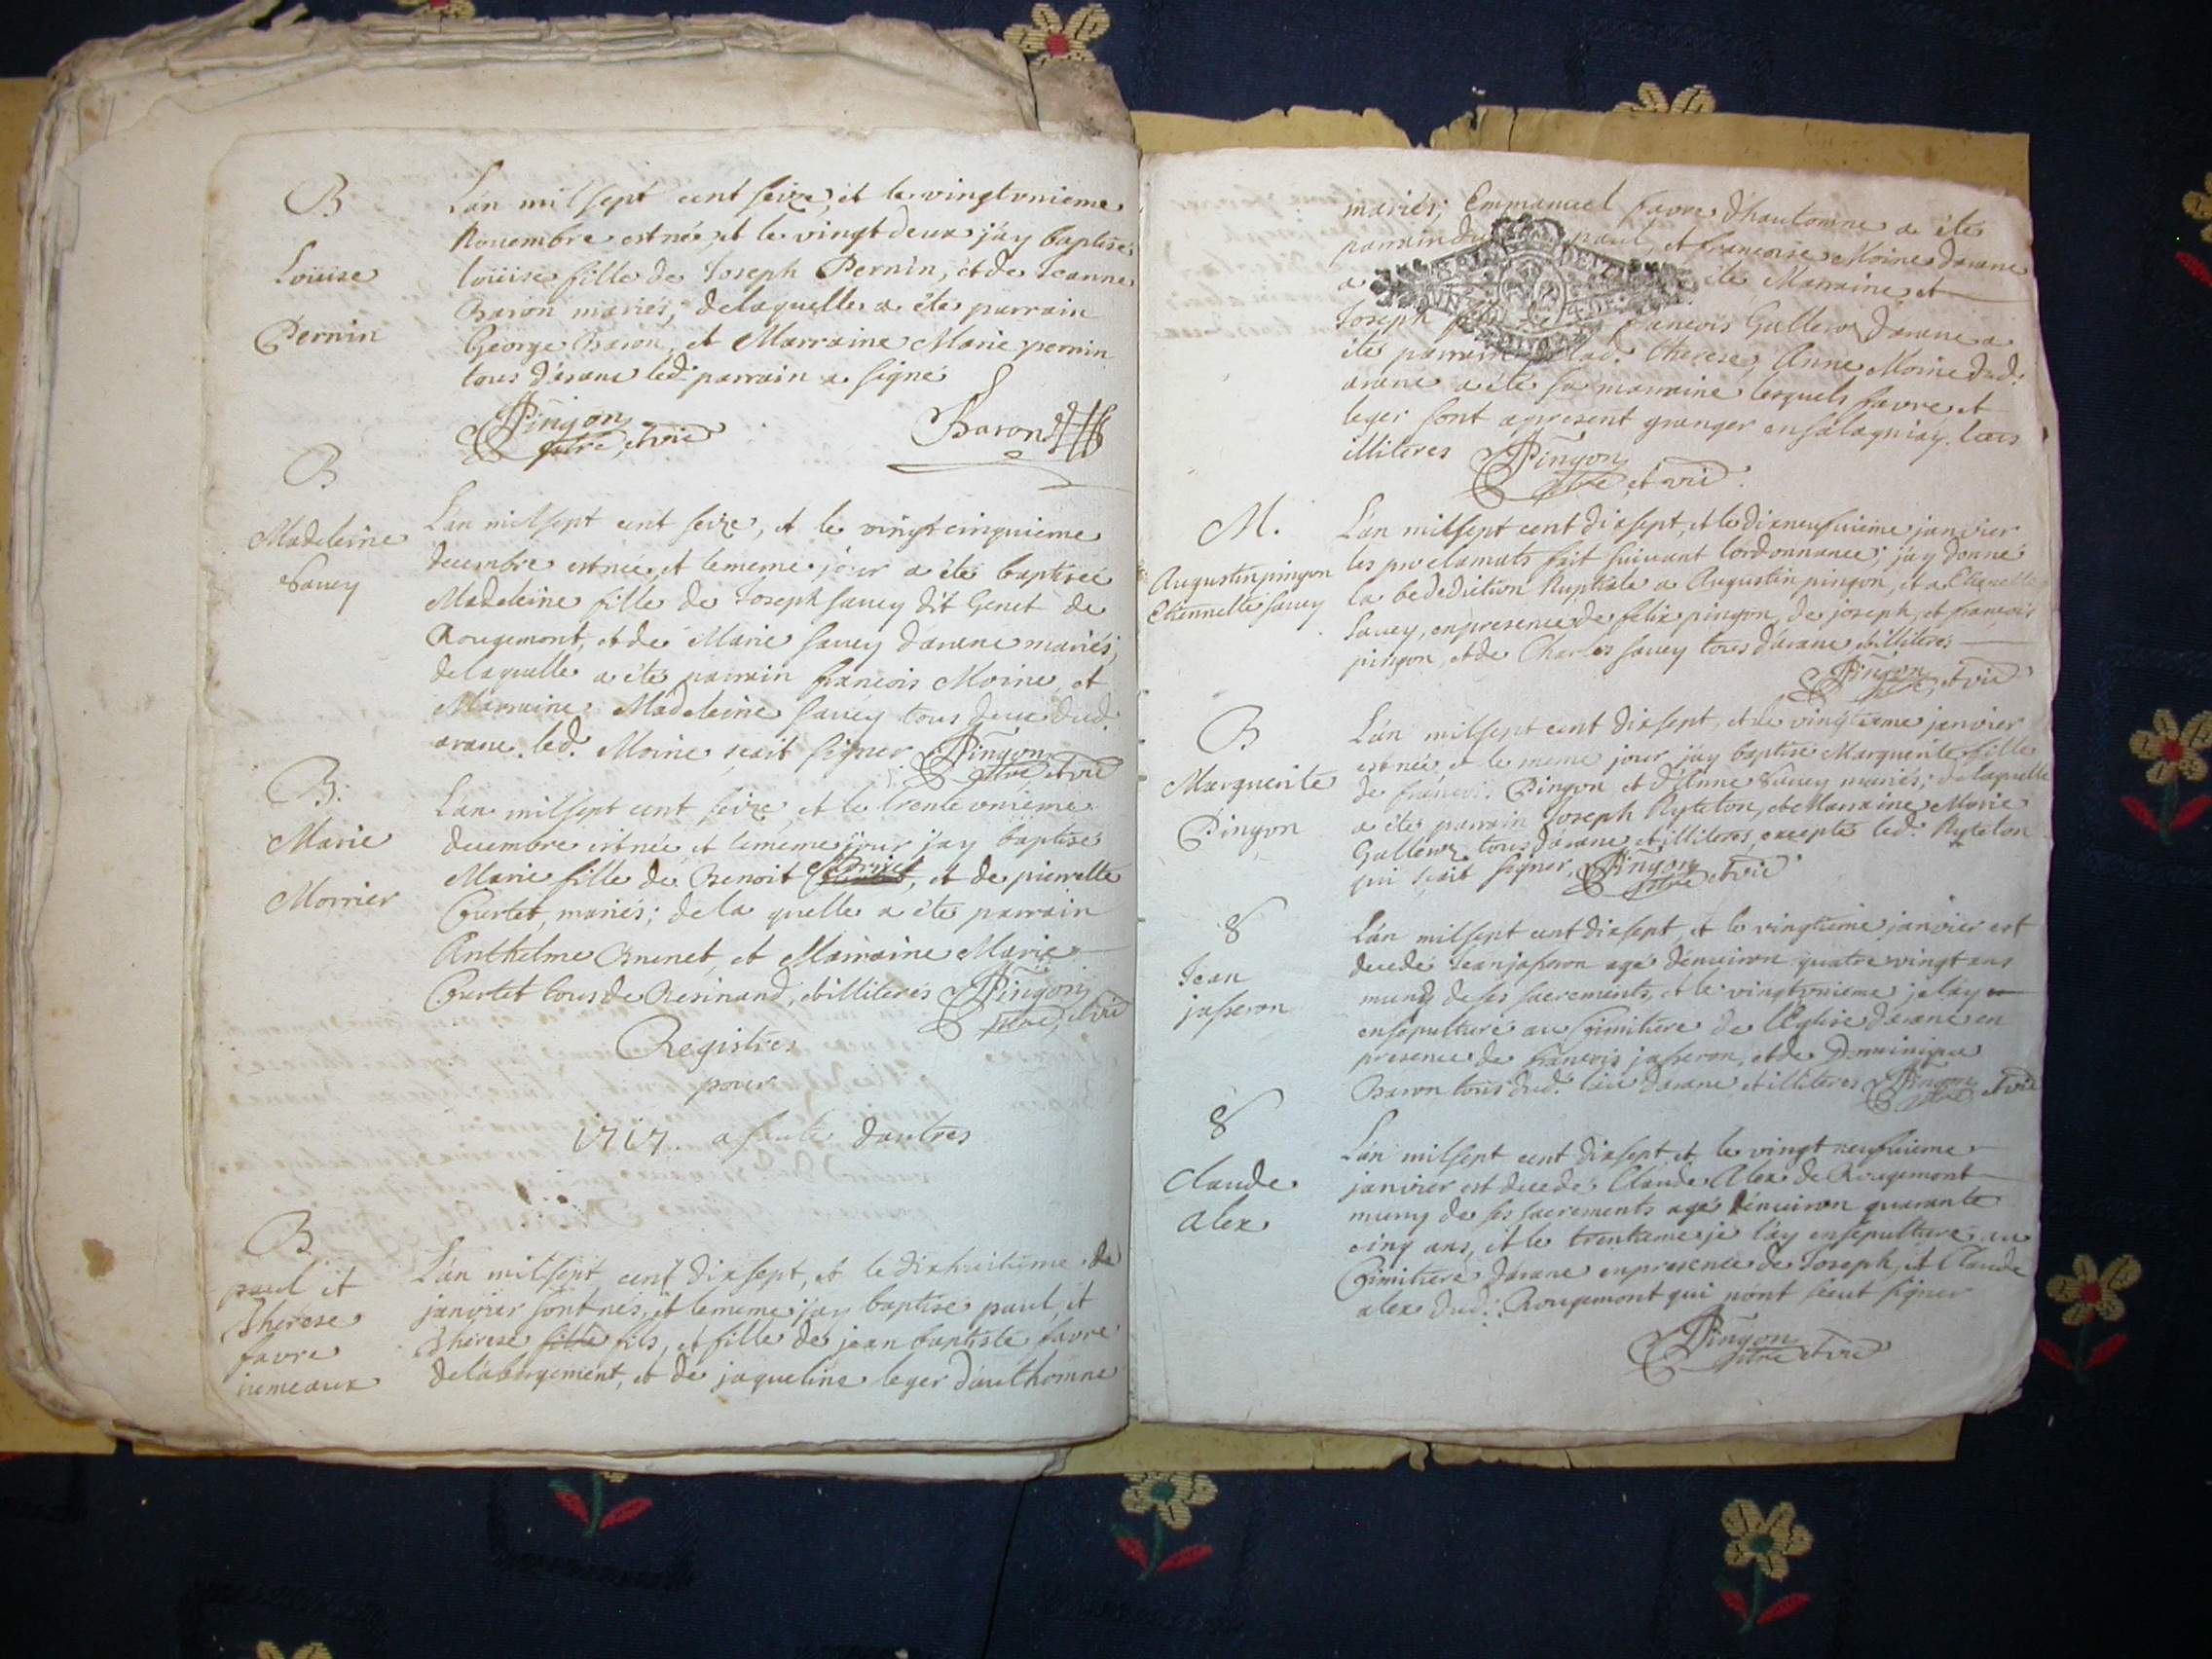 B
Loüise
Pernin
L'an mil sept cent seize, et le vingtunieme
Novembre est née, et le vingt deux j'áy baptisé
loüise fille de Joseph Pernin, et de Jeanne
Baron mariés; delaquelle a été parrain
George Baron, et Marraine Marie pernin
tous d'arane led. parrain a signé
Pingon
ptre, et vic
Baron
B
Madeleine
Savey
L'an mil sept cent seize, et le vingt cinquieme
decembre est née, et le meme jour a été baptisée
Madeleine fille de Joseph savey dit Genet de
Rougemont, et de Marie savey d'arane mariés;
delaquelle a été parrain francois Moine, et
Marraine Madeleine savey tous deux dud.
arane. led. Moine scait signer Pingon
ptre et vic
B.
Marie
Morrier
L'an mil sept cent seize, et le trente unieme
decembre est née, et le meme jour j'ay baptisé
Marie fille de Benoit et de pierrette
Courtet, mariés; de la quelle a été parrain
Anthelme Brunet, et Marraine Marie
Courtet tous de Resinand, et illiterés Pingon
ptre, et vic
Registres
pour
1717. a faute dautres
B
paul et
Therese
favre
iumeaux
L'an mil sept cent dix sept, et le dix huitieme de
janvier sont nés, et le meme j'ay baptisé paul, et
Therese fille fils, et fille de jean baptiste favre
de l'abergement, et de jaqueline leger d'authomne
mariés; Emmanuel favre d'hautomne a été
parrain dud. paul, et francoise Moine d'arane
a été Marraine, et
Joseph francois Gallew d'arane a
été parrain lad. Therese, Anne Moine dud.
arane a été sa marraine lesquels favre et
leger sont apresent granger en salagniay. tous
illiteres Pingon
ptre, et vic.
M.
Augustin pingon
Etiennette savey
L'an mil sept cent dix sept, et le dixneufvieme janvier
les proclamats fait suivant l'ordonnance; j'ay donné
la bededition Nuptiale a Augustin pingon, et a Etiennette
savey, en presence de felix pingon, de joseph, et francois
pingon, et de Charles savey tous d'arane, et illiterés
Pingon
ptre, et vic
B
Marguerite
Pingon
L'án mil sept cent dix sept, et le vingtieme janvier
est née, et le meme jour j'áy baptisé Marguerite fille
de francois Pingon, et d'Anne savey mariés; delaquelle
a été parrain Joseph Ryteton, et Marraine Marie
Gallew, tous d'arane, et illiteres, excepté led. Ryteton
qui scait signer, Pingon
ptre et vic
8
Jean
jasseron
L'án mil sept cent dix sept, et le vingtieme janvier est
decedé Jean jasseron agé d'environ quatre vingt ans
muny de ses sacrements, et le vingtunieme je l'ay
ensepulturé au cimitiere de l'Eglise d'arane en
presence de francois jasseron, et de Dominique
Baron tous dud. lieu d'arane et illiteres Pingon
ptre et vic
8
Claude
alex
L'án mil sept cent dix sept, et le vingt neufvieme
janvier est decedé Claude Alex de Rougemont
muny de ses sacrements agé d'environ quarante
cinq ans, et le trentieme je l'áy ensepulturé au
Cimitiere d'arane en presence de Joseph, et Claude
alex dud. Rougemont qui n'ont sceut signer
Pingon
ptre et vic